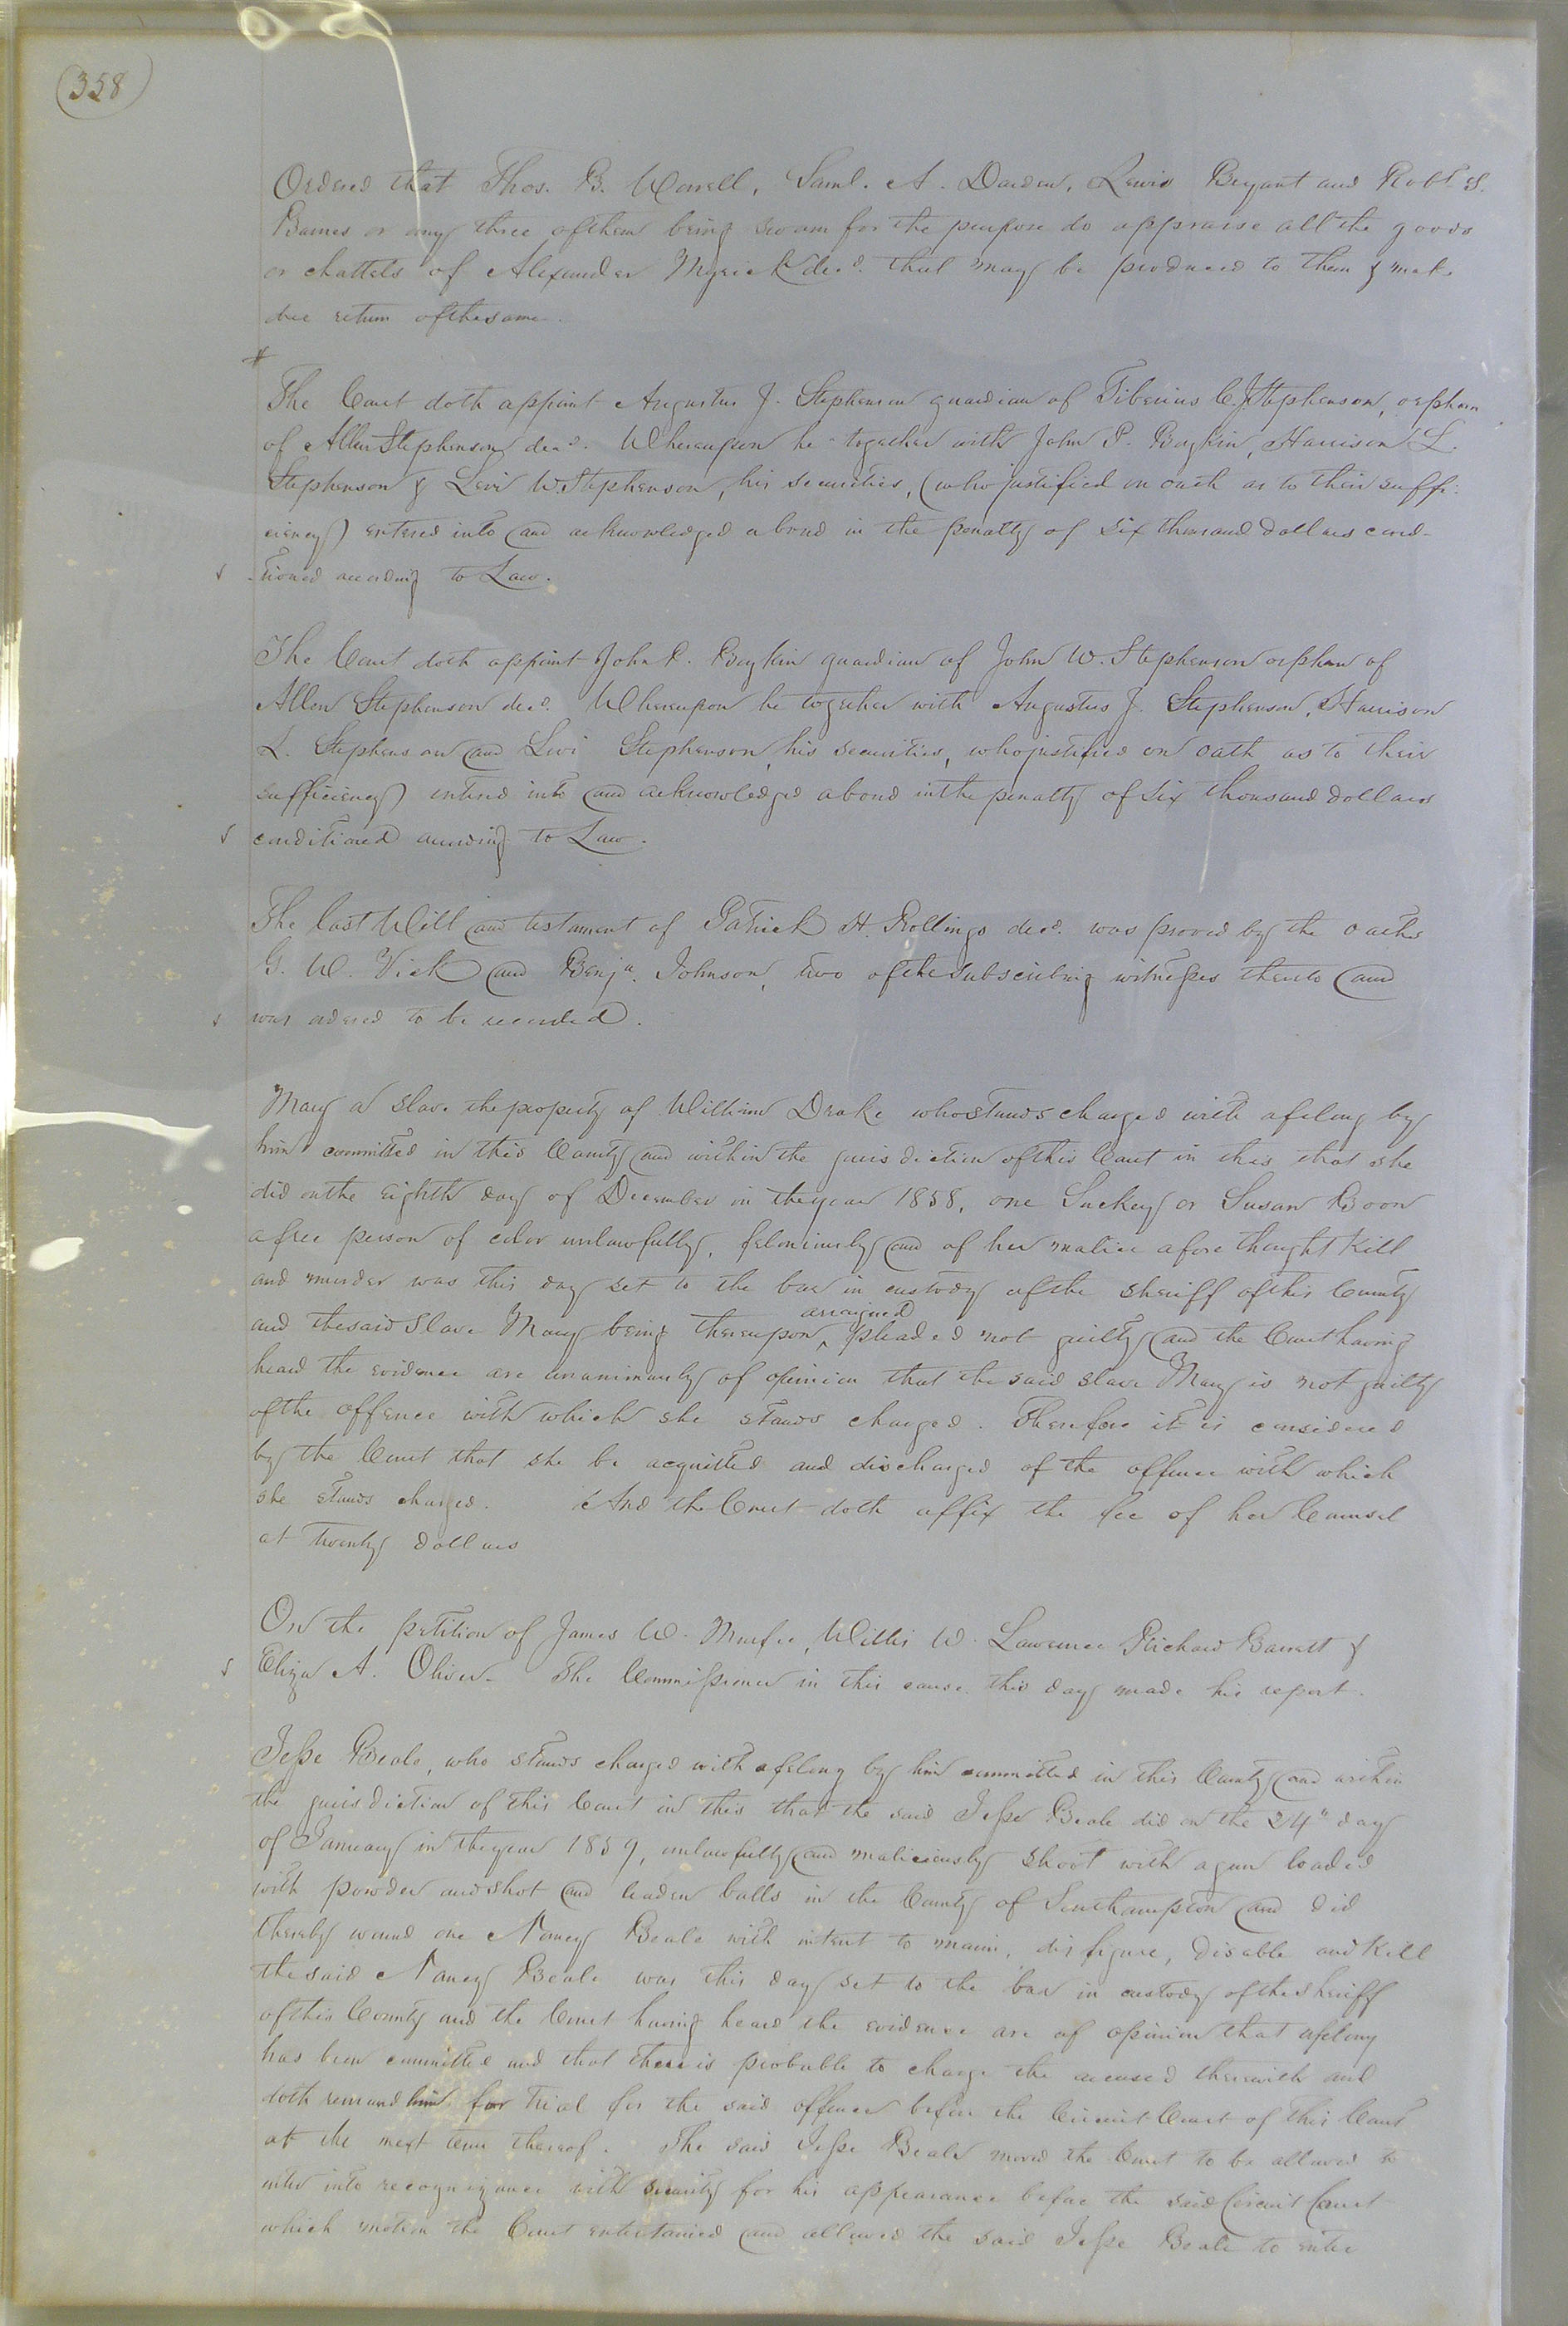 358
Ordered that Thos. B. Worrell, Saml. A. Darden, Lewis Bryant and Robt. S.
Barnes or any three of them being sworn for the purpose do appraise all the goods
or chattels of Alexander Myrick decd. that may be produced to them & make
due return of the same.
The Court doth appoint Augustus J. Stephenson guardian of Tiberius C. J. Stephenson, orphan
of Allen Stephenson decd. Whereupon he together with John P. Boykin, Harrison L.
Stephenson & Levi W. Stephenson, his securities, (who justified on oath as to their suffi-
ciency) entered into and acknowledged a bond in the penalty of six thousand dollars condi-
-tioned according to Law.
The Court doth appoint John P. Boykin guardian of John W. Stephenson orphan of
Allen Stephenson decd. Whereupon he together with Augustus J. Stephenson, Harrison
L. Stephenson and Levi Stephenson, his securities, who justified on oath as to their
sufficiency) entered into and acknowledged a bond in the penalty of six thousand dollars
conditioned according to Law.
The last Will and testament of Patrick H. Rollings decd. was proved by the oaths
G. W. Vick and Benja. Johnson, two of the subscribing witnesses thereto and
was ordered to be recorded.
Mary a slave the property of William Drake who stands charged with a felony by
him committed in this County and within the jurisdiction of this Court in this that she
did on the eighth day of December in the year 1858, one Suckey or Susan Boon
a free person of color unlawfully, feloniously and of her malice afore thought kill
and murder was this day set to the bar in custody of the sheriff of this County
and the said Slave Mary being thereupon ^arraigned pleaded not guilty and the Court having
heard the evidence are unanimously of opinion that the said slave Mary is not guilty
of the offence with which she stands charged. Therefore it is considered
by the Court that she be acquitted and discharged of the offence with which
she stands charged. And the Court doth affix the fee of her Counsel
at twenty dollars
On the petition of James W. Murfee, Willis W. Lawrence Richard Barrett &
Eliza A. Oliver. The Commissioner in this cause this day made his report.
Jesse Beale, who stands charged with a felony by him committed in this County and within
the jurisdiction of this Court in this that the said Jesse Beale did on the 24" day
of January in the year 1859, unlawfully and maliciously shoot with a gun loaded
with powder and shot and leaden balls in the County of Southampton and did
thereby wound one Nancy Beale with intent to maim, disfigure, disable and kill
the said Nancy Beale was this day set to the bar in custody of the sheriff
of this County and the Court having heard the evidence are of opinion that a felony
has been committed and that there is probable to charge the accused therewith and
doth remand him for trial for the said offence before the Circuit Court of this County
at the next term thereof. The said Jesse Beale moved the Court to be allowed to
enter into recognizance with security for his appearance before the said Circuit Court
which motion the Court entertained and allowed the said Jesse Beale to enter